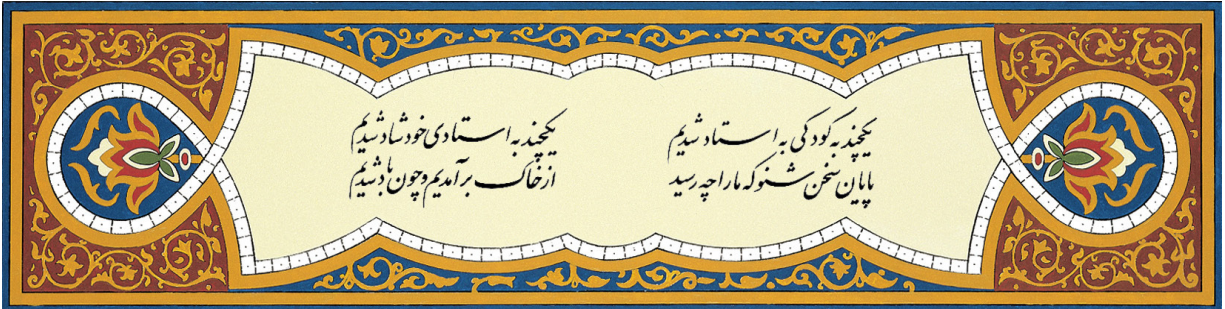 یکچند به کودکی به استاد شدیم
یکچند به استادی خود شاد شدیم
پایان سخن شنو که ما را چه رسید
از خاک برآمدیم و چون باد شدیم